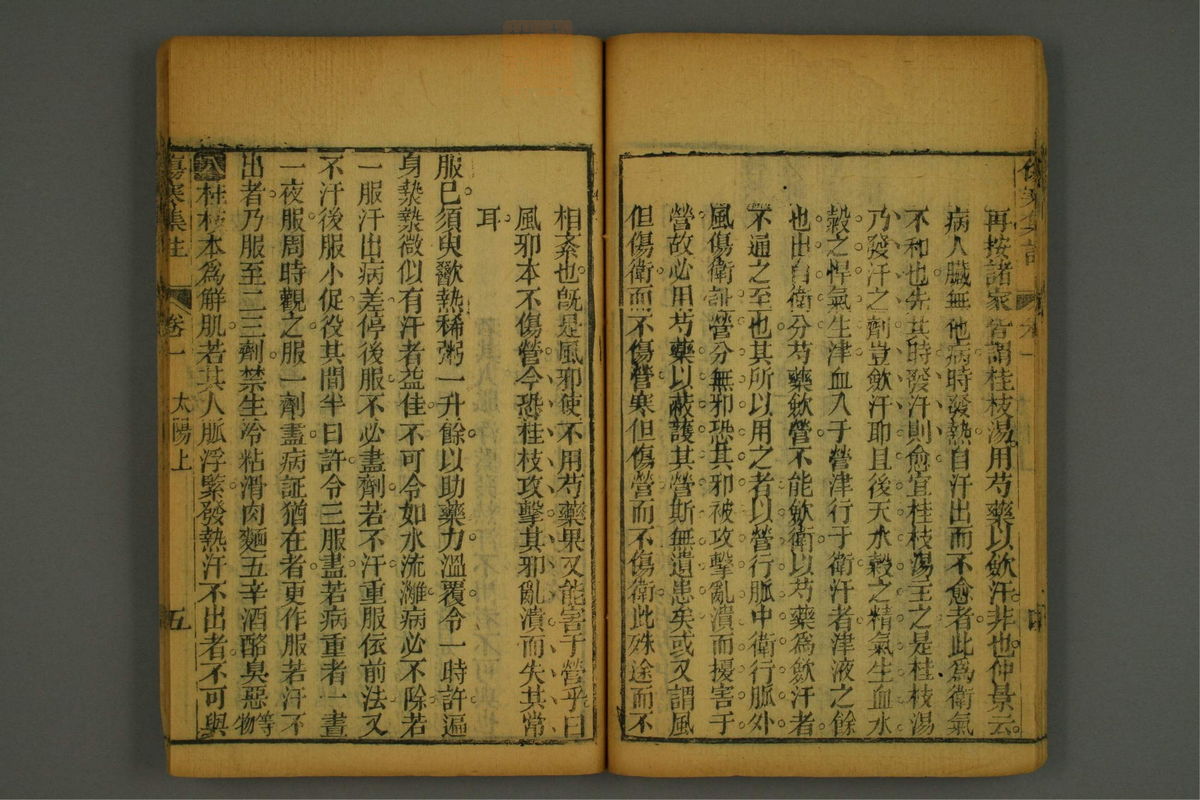 再按諸家皆謂桂枝湯用芍藥以歛汗非也仲景云
病人臟無他病時發熱自汗出而不愈者此為衛氣
不和也先其時發汗則愈宜桂枝湯主之是桂枝湯
乃發汗之劑豈歛汗耶且後天水穀之精氣生血水
穀之悍氣生津血入于營津行于衛汗者津液之餘
也由自衛分芍藥歛營不能歛衛以芍藥為歛汗者
不通之至也其所以用之者以營行脈中衛行脈外
風傷衛証營分無邪恐其邪被攻擊亂潰而擾害于
營故必用芍藥以蔽護其營斯無遺患矣或又謂風
但傷衛而不傷營寒但傷營而不傷衛此殊途而不
相紊也既是風邪使不用芍藥果又能害于營乎曰
風邪本不傷營今恐桂枝攻擊其邪亂潰而失其常
耳
服已須臾歠熱稀粥一升餘以助藥力溫覆令一時許遍
身漐漐微似有汗者益佳不可令如水流漓病必不除若
一服汗出病差停後服不必盡劑若不汗重服依前法又
不汗後服小促役其間半日許令三服盡若病重者一晝
一夜服周時觀之服一劑盡病証猶在者更作服若汗不
出者乃服至二三劑禁生冷粘滑肉麵五辛酒酪臭惡等物
八桂枝本為解肌若其人脈浮緊發熱汗不出者不可與
傷寒集註 卷一 太陽上 五